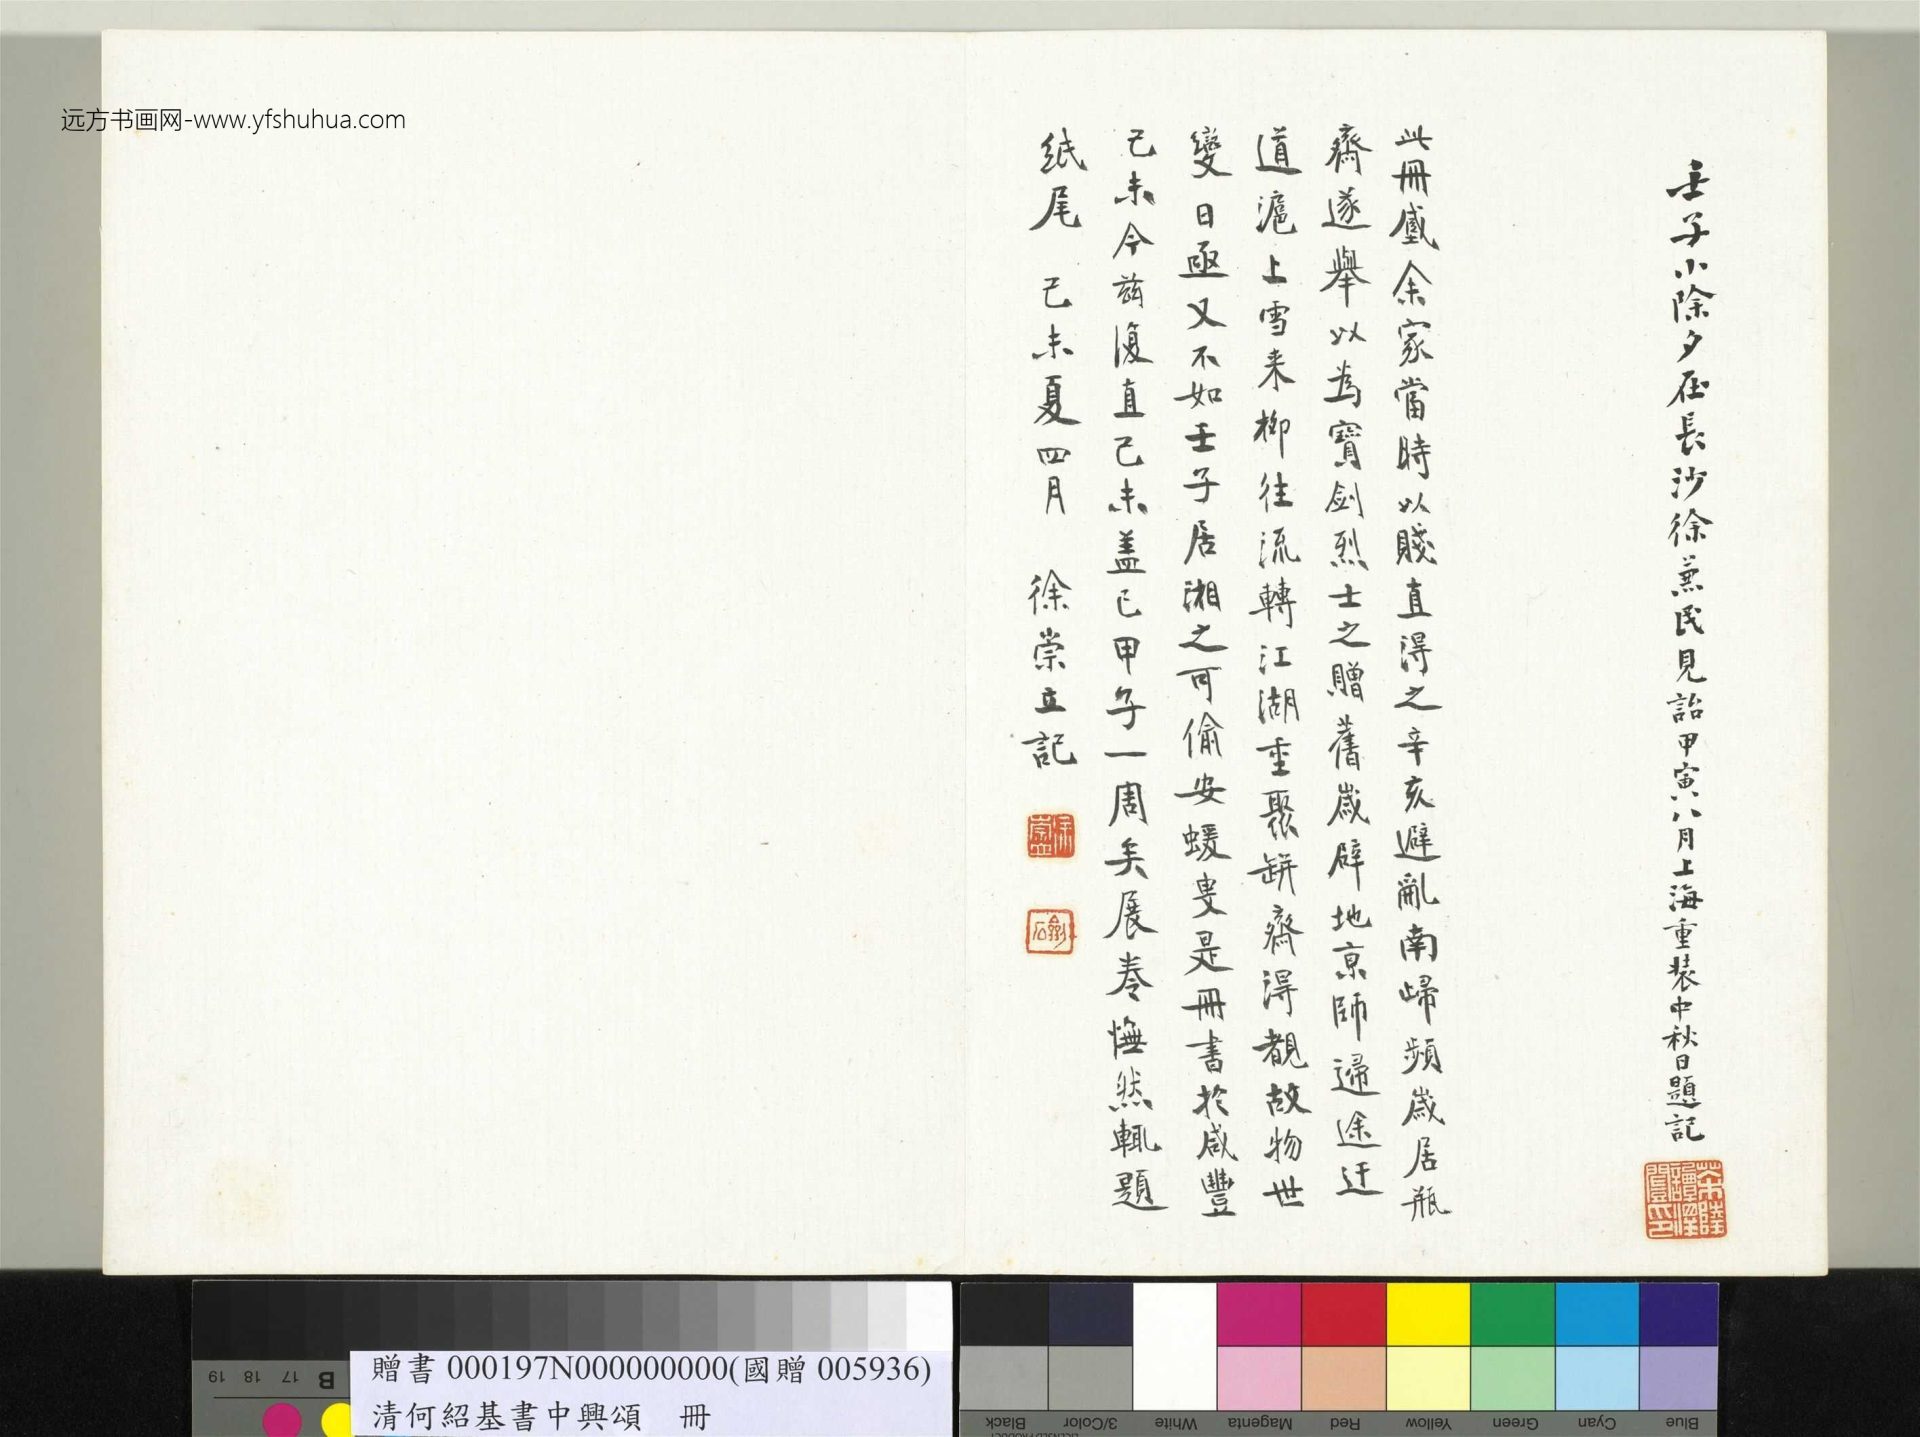 远方书画网-www.yfshuhua.com
壬子小除夕在長沙徐蕉民見詒甲寅八月上海重装中秋日題記
茶陵譚澤闓印
此冊盛余家當時以賤直得之辛亥避亂南歸頻歲居瓶
齋遂舉以為寶劍烈士之贈舊歲辟地京師遄途迂
道滬上雪来柳往流轉江湖重聚缾齋得覩故物世
變日亟又不如壬子居湘之可偷安蝯叟是冊書於咸豐
己未今茲復直己未盖已甲子一周矣展卷憮然輒題
紙尾 己未夏四月 徐崇立記
徐崇立
贈書 000197N000000000(國贈 005936)
清何紹基書中興頌 冊
19 18 17 B
Black 3/Color White Magenta Red Yellow Green Cyan Blue